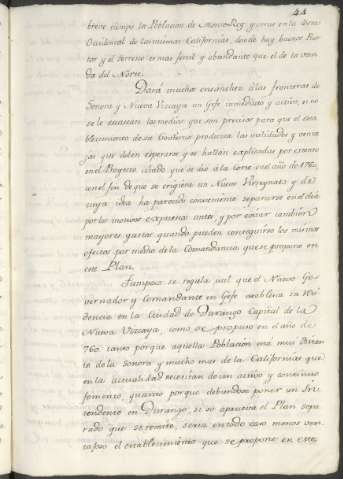 44
breve tiempo la Poblacion de Monte Rey, y otras en la Costa
Occidental de las mismas Californias, donde hay buenos Puer-
tos y el terreno es mas fertil y abundante que el de la van-
da del Norte.
Dará mucho ensanche á las fronteras de
Sonora y Nueva Vizcaya un Gefe inmediato y activo, si no
se le escasean los medios que son precisos para que el esta-
blecimiento de su Govierno produzca las utilidades y venta-
jas que deben esperarse y se hallan explicadas por extenso
en el Proyecto citado que se dió á la Corte en el año de 1760,
en el fin de que se erigiese un Nuevo Virreynato, y de
cuya idea ha parecido conveniente separarse en el dia
por los motivos expuestos antes, y por evitar tambien
mayores gastos quando pueden conseguirse los mismos
efectos por medio de la Comandancia que se propone en
este Plan.
Tampoco se regula util que el Nuevo Go-
vernador y Comandante en Gefe establezca su Resi-
dencia en la Ciudad de Durango Capital de la
Nueva Vizcaya, como se propuso en el año de
760. tanto porque aquella Poblacion está muy distan-
te de la Sonora y mucho mas de las Californias que
en la actualidad necesitan de un activo y continuo
fomento, quanto porque debiendose poner un In-
tendente en Durango, si se aprueva el Plan sepa-
rado que se remite, seria en todo caso menos ven-
tajoso el establecimiento que se propone en este